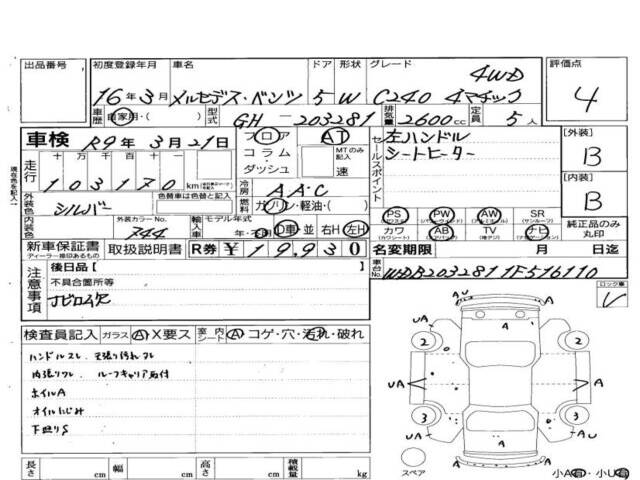 出品番号 初度登録年月 車名 ドア 形状 グレード 評価点
16年3月 メルセデス・ベンツ 5 W C240 4マチック 4WD 4
車歴 自家用・( ) 型式 GH-203281 排気量 2600cc 定員 5人
車検 R9年3月21日 フロア コラム・ダッシュ AT MTのみ記入 速
セールスポイント 左ハンドル
シートヒーター
[外装] B
走行 十万 万 千 百 十 一
103170 km
冷房 AAC
[内装] B
外装色 シルバー 色替車は色替と記入
燃料 ガソリン・軽油・( )
PS PW AW SR
(パワーウィンド) (サンルーフ)
カワ AB TV ナビ
(カワシート) (エアバッグ) (地デジ)
純正品のみ丸印
内装色 外装カラーNo. 744 輸入車 モデル年式 年・ D車・並 右H 左H
新車保証書 取扱説明書 R券 ¥19,930 名変期限 月 日迄
ディーラー捺印あるもの
車台No. WDB2032811F516110
注意事項 後日品[
不具合箇所等
ナビロム欠
ロック車
レ
検査員記入 ガラス A・X要ス 室内シート A・コゲ・穴・汚れ・破れ
ハンドルスレ
内張りワレ、ルーフキャリア取付
ホイルA
オイルにじみ
下廻りS
A
UA U
2 2
UA A A
3 3
UA A A
スペア A
小A有・小U有
長さ cm 幅 cm 高さ cm 積載量 kg